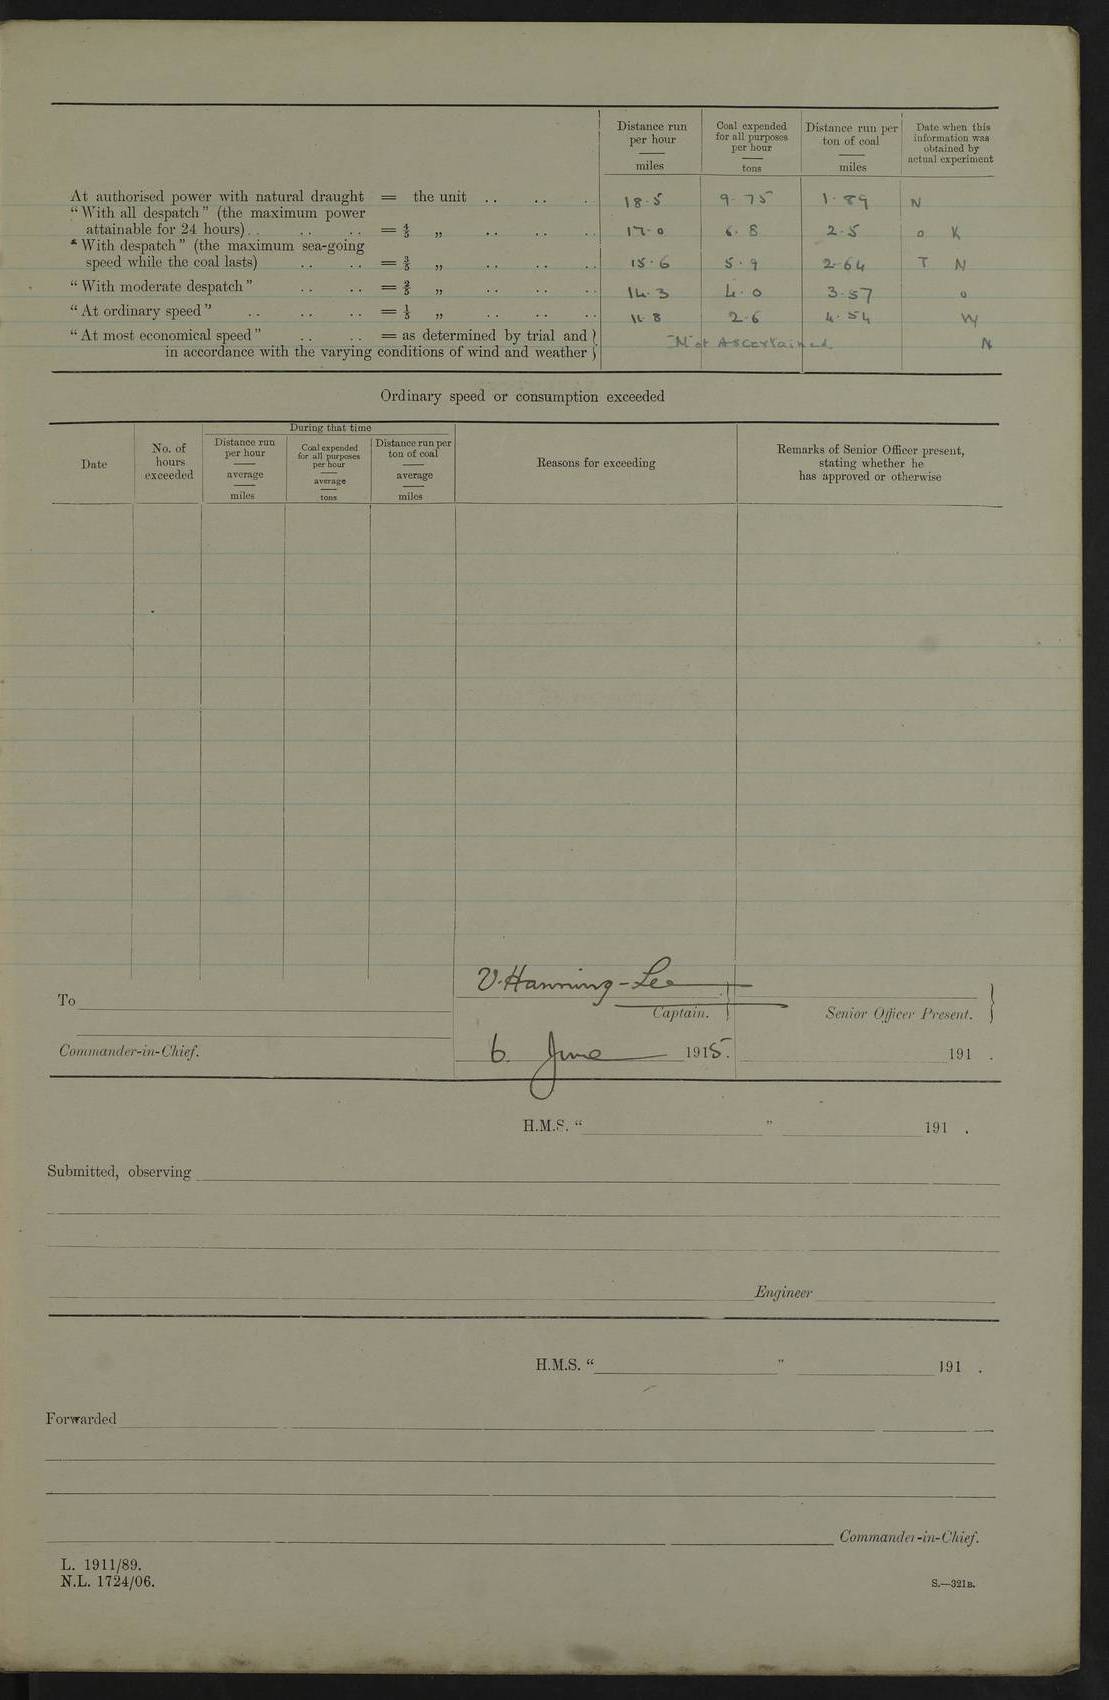 Distance run per hour miles
Coal expended for all purposes per hour tons
Distance run per ton of coal miles
Date when this information was obtained by actual experiment
At authorised power with natural draught = the unit .. .. .. 18.5 9.75 1.89 N
"With all despatch" (the maximum power
attainable for 24 hours) .. .. .. = 4/5 „ .. .. .. 17.0 6.8 2.5 O K
* "With despatch" (the maximum sea-going
speed while the coal lasts) .. .. = 3/5 „ .. .. .. 15.6 5.9 2.64 T N
"With moderate despatch" .. .. = 2/5 „ .. .. .. 14.3 4.0 3.57 O
"At ordinary speed" .. .. .. = 1/5 „ .. .. .. 11.8 2.6 4.54 W
"At most economical speed" .. .. = as determined by trial and } Not Ascertained N
in accordance with the varying conditions of wind and weather }
Ordinary speed or consumption exceeded
During that time
Date
No. of hours exceeded
Distance run per hour average miles
Coal expended for all purposes per hour average tons
Distance run per ton of coal average miles
Reasons for exceeding
Remarks of Senior Officer present, stating whether he has approved or otherwise
V. Hanning-Lee
To
Captain. }
Senior Officer Present. }
Commander-in-Chief.
6. June 1915.
191 .
H.M.S. " " 191 .
Submitted, observing
Engineer
H.M.S. " " 191 .
Forwarded
Commander-in-Chief.
L. 1911/89.
N.L. 1724/06.
S.—321B.